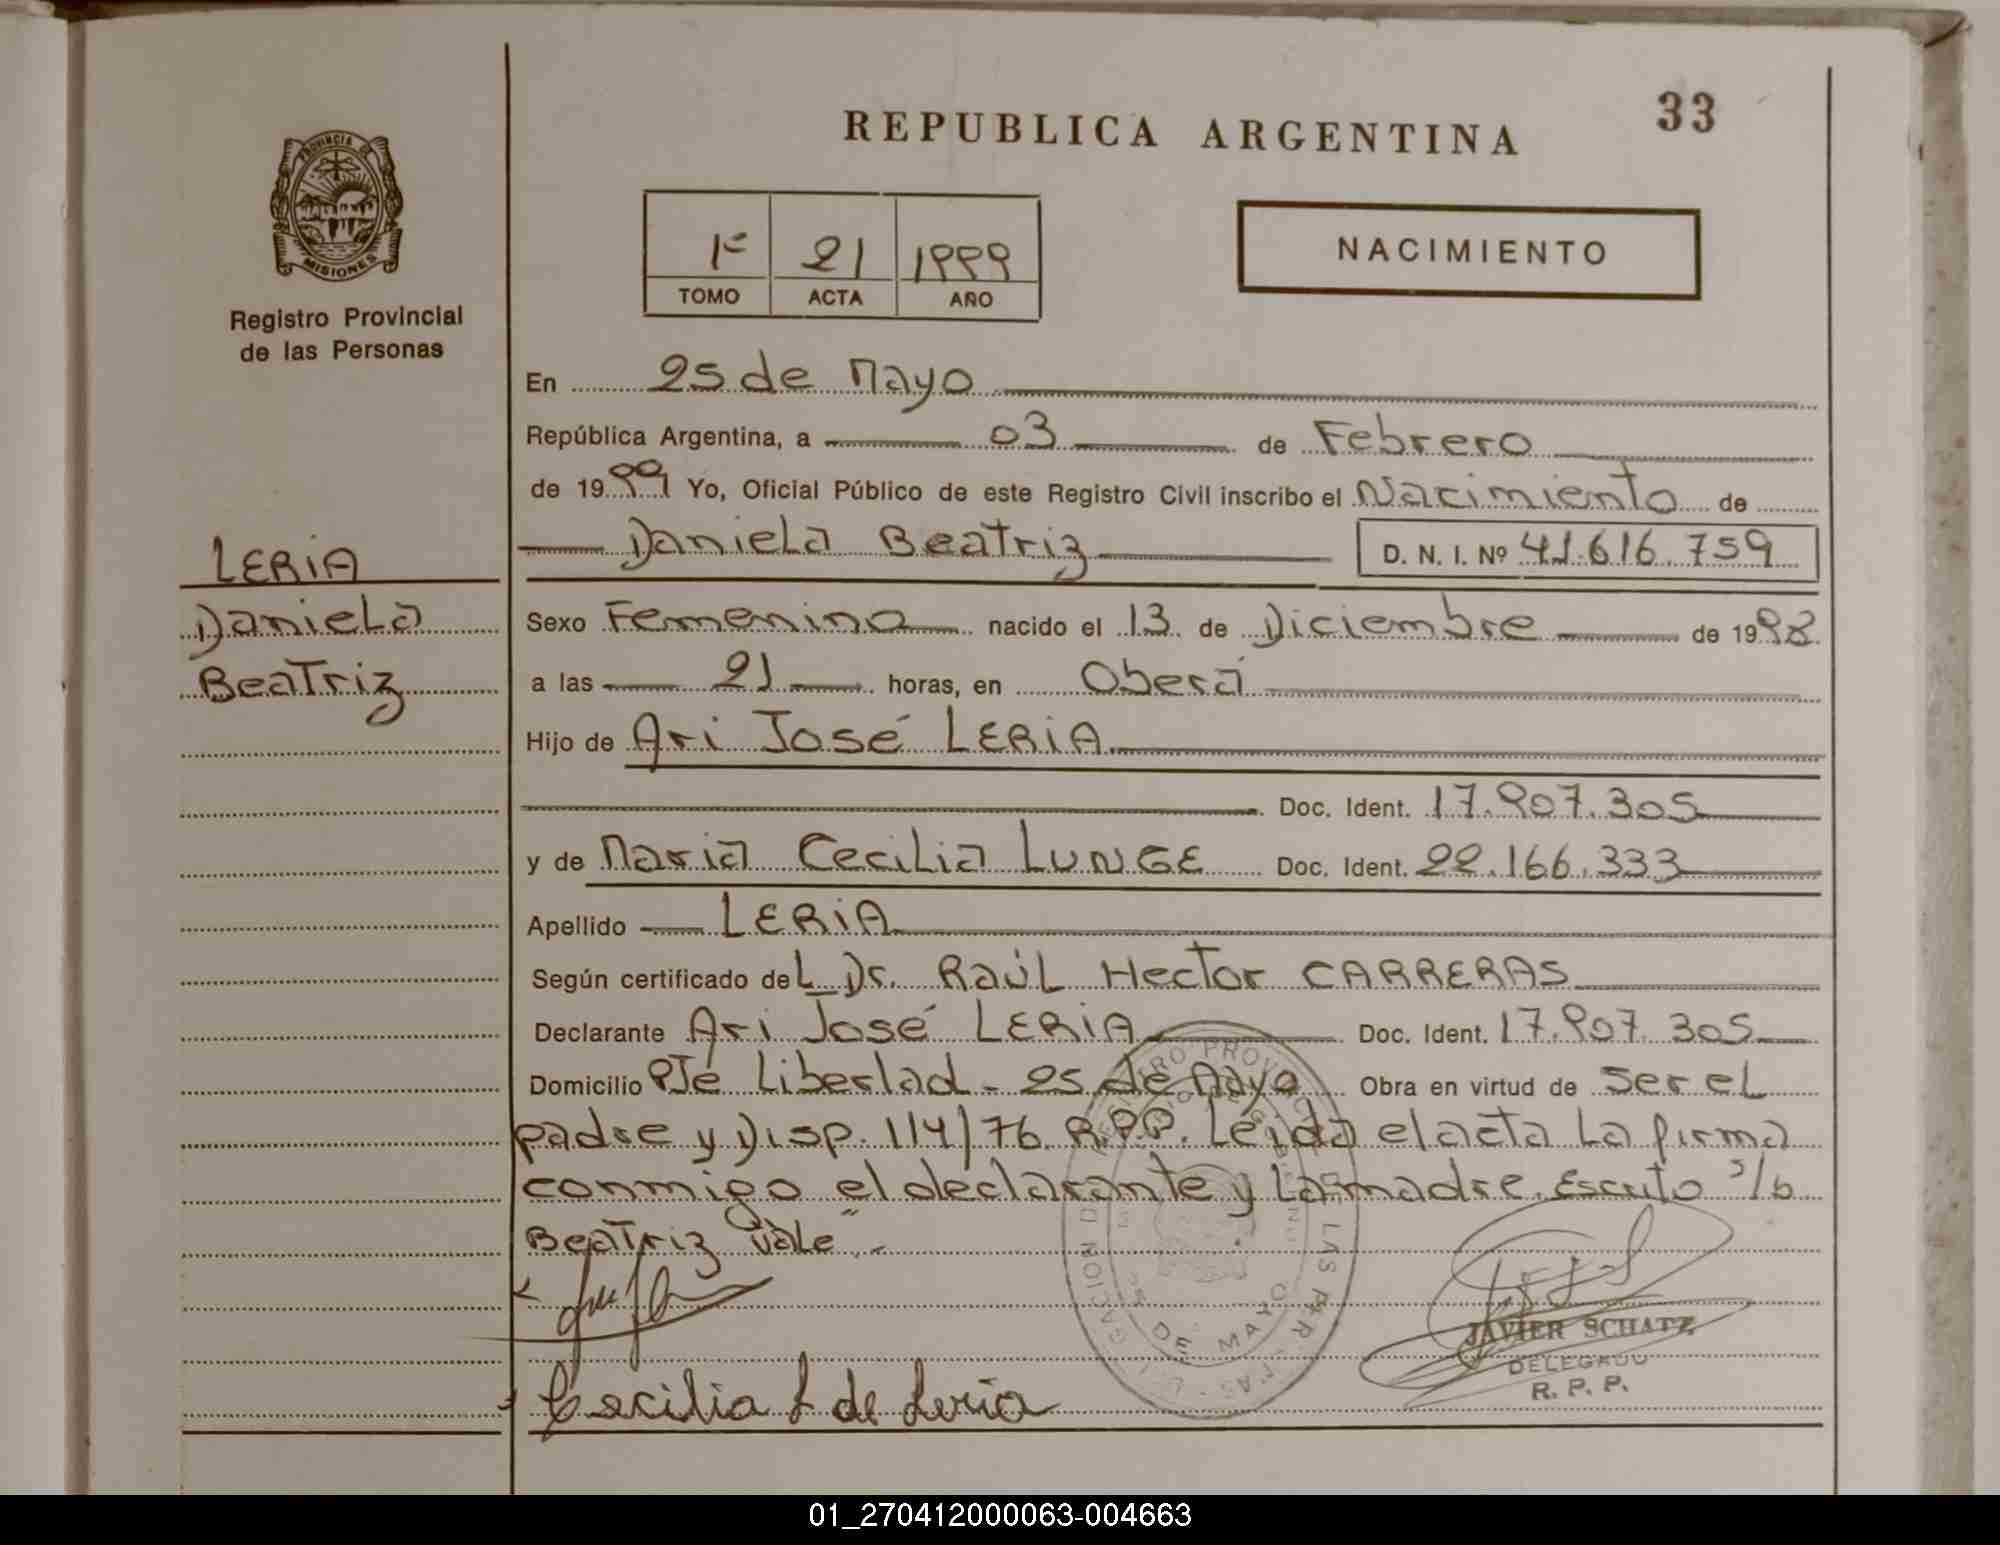 33
REPUBLICA ARGENTINA
PROVINCIA DE
MISIONES
Registro Provincial
de las Personas
1º 21 1999
TOMO ACTA AÑO
NACIMIENTO
En 25 de Mayo
República Argentina, a 03 de Febrero
de 1999 Yo, Oficial Público de este Registro Civil inscribo el Nacimiento de
Daniela Beatriz D. N. I. Nº 41.616.759
LERIA
Daniela
Beatriz
Sexo Femenino nacido el 13 de Diciembre de 1998
a las 21 horas, en Oberá
Hijo de Ari José LERIA
Doc. Ident. 17.907.305
y de Maria Cecilia LUNGE Doc. Ident. 22.166.333
Apellido LERIA
Según certificado del Dr. Raúl Hector CARRERAS
Declarante Ari José LERIA Doc. Ident. 17.907.305
Domicilio Pje Libertad - 25 de Mayo Obra en virtud de ser el
padre y Disp. 114/76 R.P.P. Leida el acta La firma
conmigo el declarante y La madre. Escrito s/b
Beatriz "Vale".-
Cecilia L de Leria
25 DE MAYO
JAVIER SCHATZ
DELEGADO
R. P. P.
01_270412000063-004663